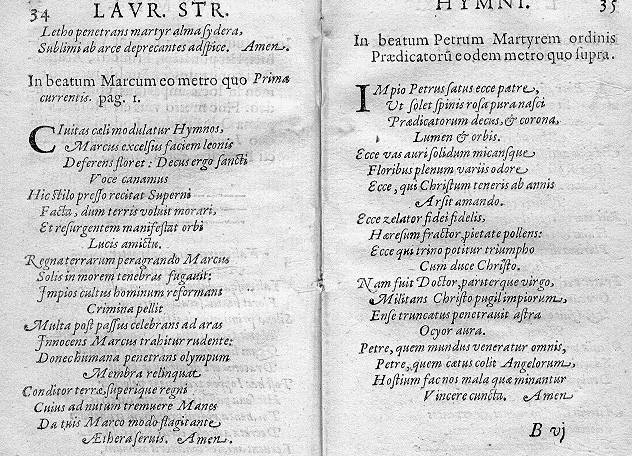 34 LAVR. STR.
Letho penetrans martyr alma sydera,
Sublimi ab arce deprecantes adspice. Amen.
In beatum Marcum eo metro quo Prima
currentis. pag. 1.
CIuitas cæli modulatur Hymnos,
Marcus excelsius faciem leonis
Deferens floret: Decus ergo sancti
Voce canamus
Hic stilo presso recitat Superni
Facta, dum terris voluit morari,
Et resurgentem manifestat orbi
Lucis amictu.
Regna terrarum peragrando Marcus
Solis in morem tenebras fugauit:
Impios cultus hominum reformans
Crimina pellit
Multa post passus celebrans ad aras
Innocens Marcus trahitur rudente:
Donec humana penetrans olympum
Membra relinquat
Conditor terræ, superique regni
Cuius ad nutum tremuere Manes
Da tuis Marco modo flagitante
Æthera seruis. Amen.
HYMNI. 35
In beatum Petrum Martyrem ordinis
Prædicatorū eodem metro quo supra.
IMpio Petrus satus ecce patre,
Ut solet spinis rosa pura nasci
Prædicatorum decus, & corona,
Lumen & orbis.
Ecce vas auri solidum micansque
Floribus plenum variis odore
Ecce, qui Christum teneris ab annis
Arsit amando.
Ecce zelator fidei fidelis,
Hæresum fractor, pietate pollens:
Ecce qui trino potitur triumpho
Cum duce Christo.
Nam fuit Doctor, pariterque virgo,
Militans Christo pugil impiorum
Ense truncatus penetrauit astra
Ocyor aura.
Petre, quem mundus veneratur omnis,
Petre, quem cætus colit Angelorum,
Hostium fac nos mala quæ minantur
Vincere cuncta. Amen
B vj